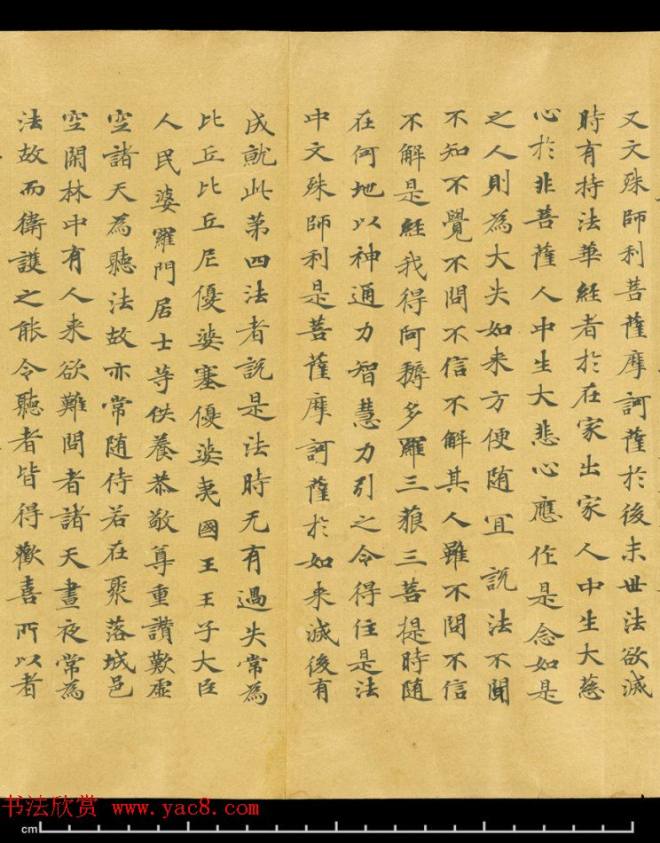 又文殊師利菩薩摩訶薩於後末世法欲滅
時有持法華經者於在家出家人中生大慈
心於非菩薩人中生大悲心應作是念如是
之人則為大失如来方便随宜說法不聞
不知不覺不問不信不解其人雖不問不信
不解是經我得阿耨多羅三藐三菩提時随
在何地以神通力智慧力引之令得住是法
中文殊師利是菩薩摩訶薩於如来滅後有
成就此第四法者說是法時无有過失常為
比丘比丘尼優婆塞優婆夷國王王子大臣
人民婆羅門居士等供養恭敬尊重讚歎虛
空諸天為聽法故亦常随侍若在聚落城邑
空閑林中有人来欲難問者諸天晝夜常為
法故而衛護之能令聽者皆得歡喜所以者
书法欣赏 www.yac8.com
cm